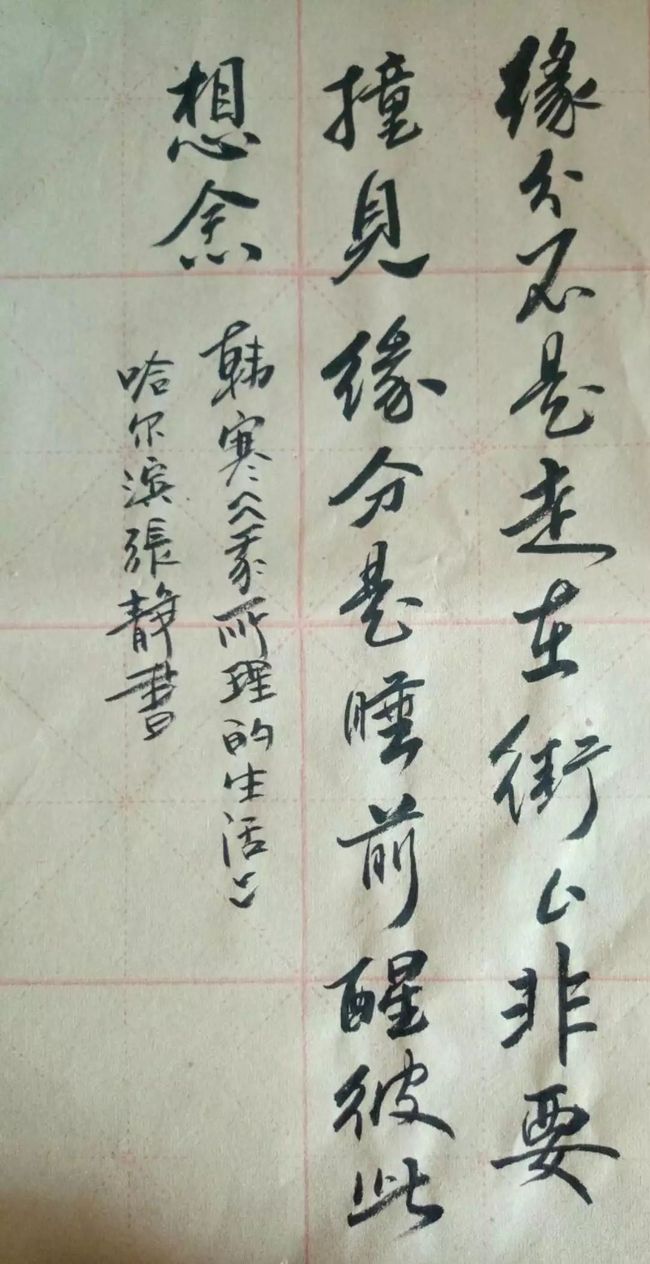 缘分不是走在街上非要
撞見缘分是睡前醒彼此
想念
韩寒《我所理的生活》
哈尔滨張静書